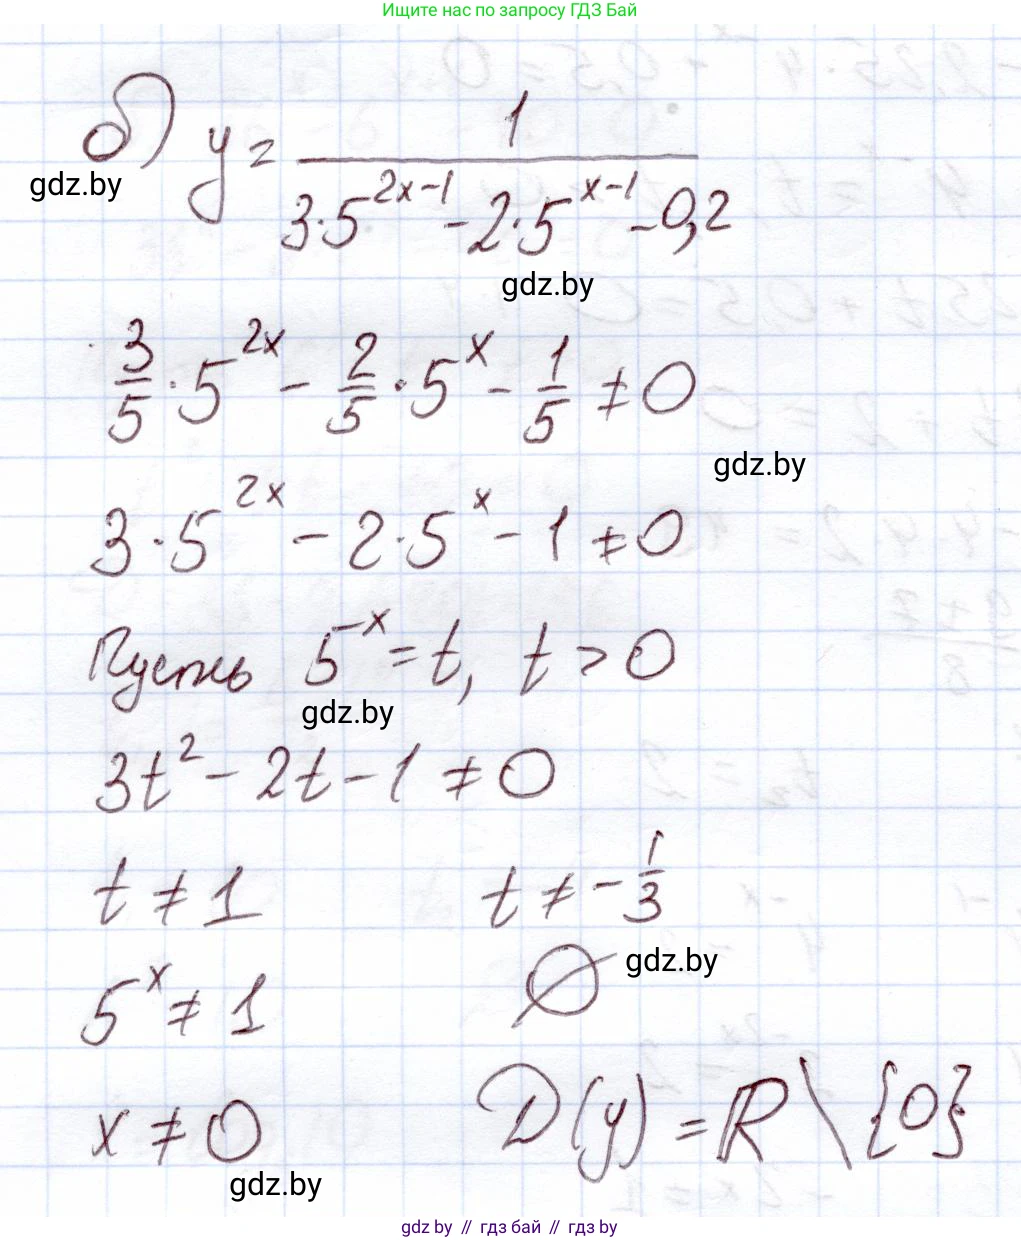 Ищите нас по запросу ГДЗ Бай
б) y = 1 / (3·5^(2x-1) - 2·5^(x-1) - 0,2)
gdz.by
gdz.by
3/5 · 5^(2x) - 2/5 · 5^x - 1/5 ≠ 0
gdz.by
3·5^(2x) - 2·5^x - 1 ≠ 0
Пусть 5^x = t, t > 0
gdz.by
3t² - 2t - 1 ≠ 0
t ≠ 1 t ≠ -1/3
5^x ≠ 1 ∅ gdz.by
x ≠ 0 D(y) = R \ {0}
gdz.by
gdz by // гдз бай // гдз by